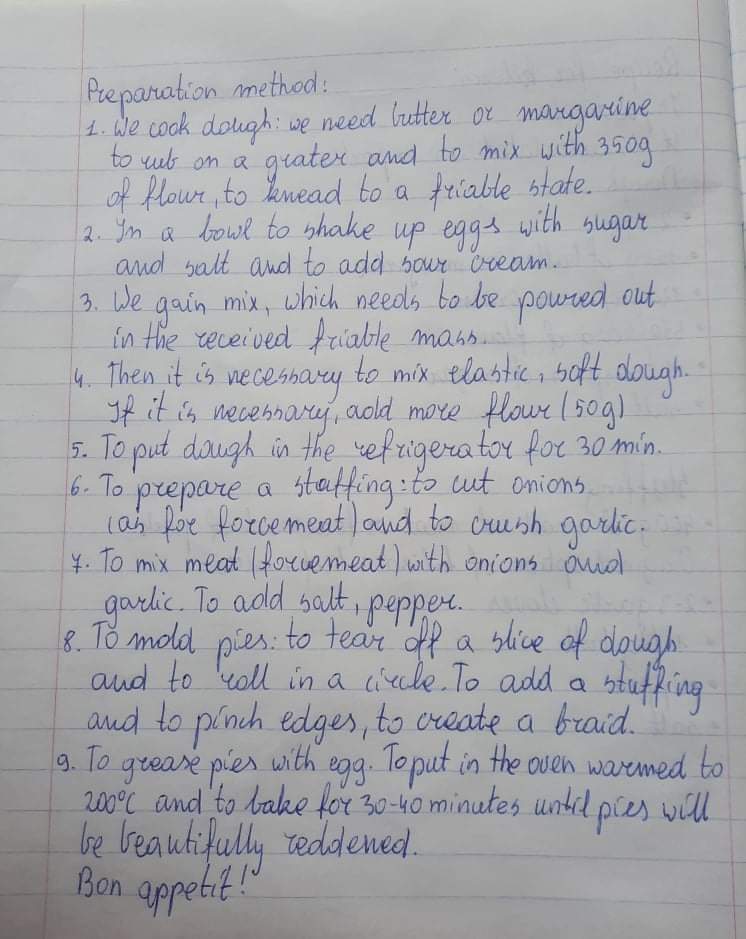 Preparation method:
1. We cook dough: we need butter or margarine
to rub on a grater and to mix with 350g
of flour, to knead to a friable state.
2. In a bowl to shake up eggs with sugar
and salt and to add sour cream.
3. We gain mix, which needs to be poured out
in the received friable mass.
4. Then it is necessary to mix elastic, soft dough.
If it is necessary, add more flour (50g)
5. To put dough in the refrigerator for 30 min.
6. To prepare a stuffing: to cut onions
(as for forcemeat) and to crush garlic.
7. To mix meat (forcemeat) with onions and
garlic. To add salt, pepper.
8. To mold pies: to tear off a slice of dough
and to roll in a circle. To add a stuffing
and to pinch edges, to create a braid.
9. To grease pies with egg. To put in the oven warmed to
200°C and to bake for 30-40 minutes until pies will
be beautifully reddened.
Bon appetit!